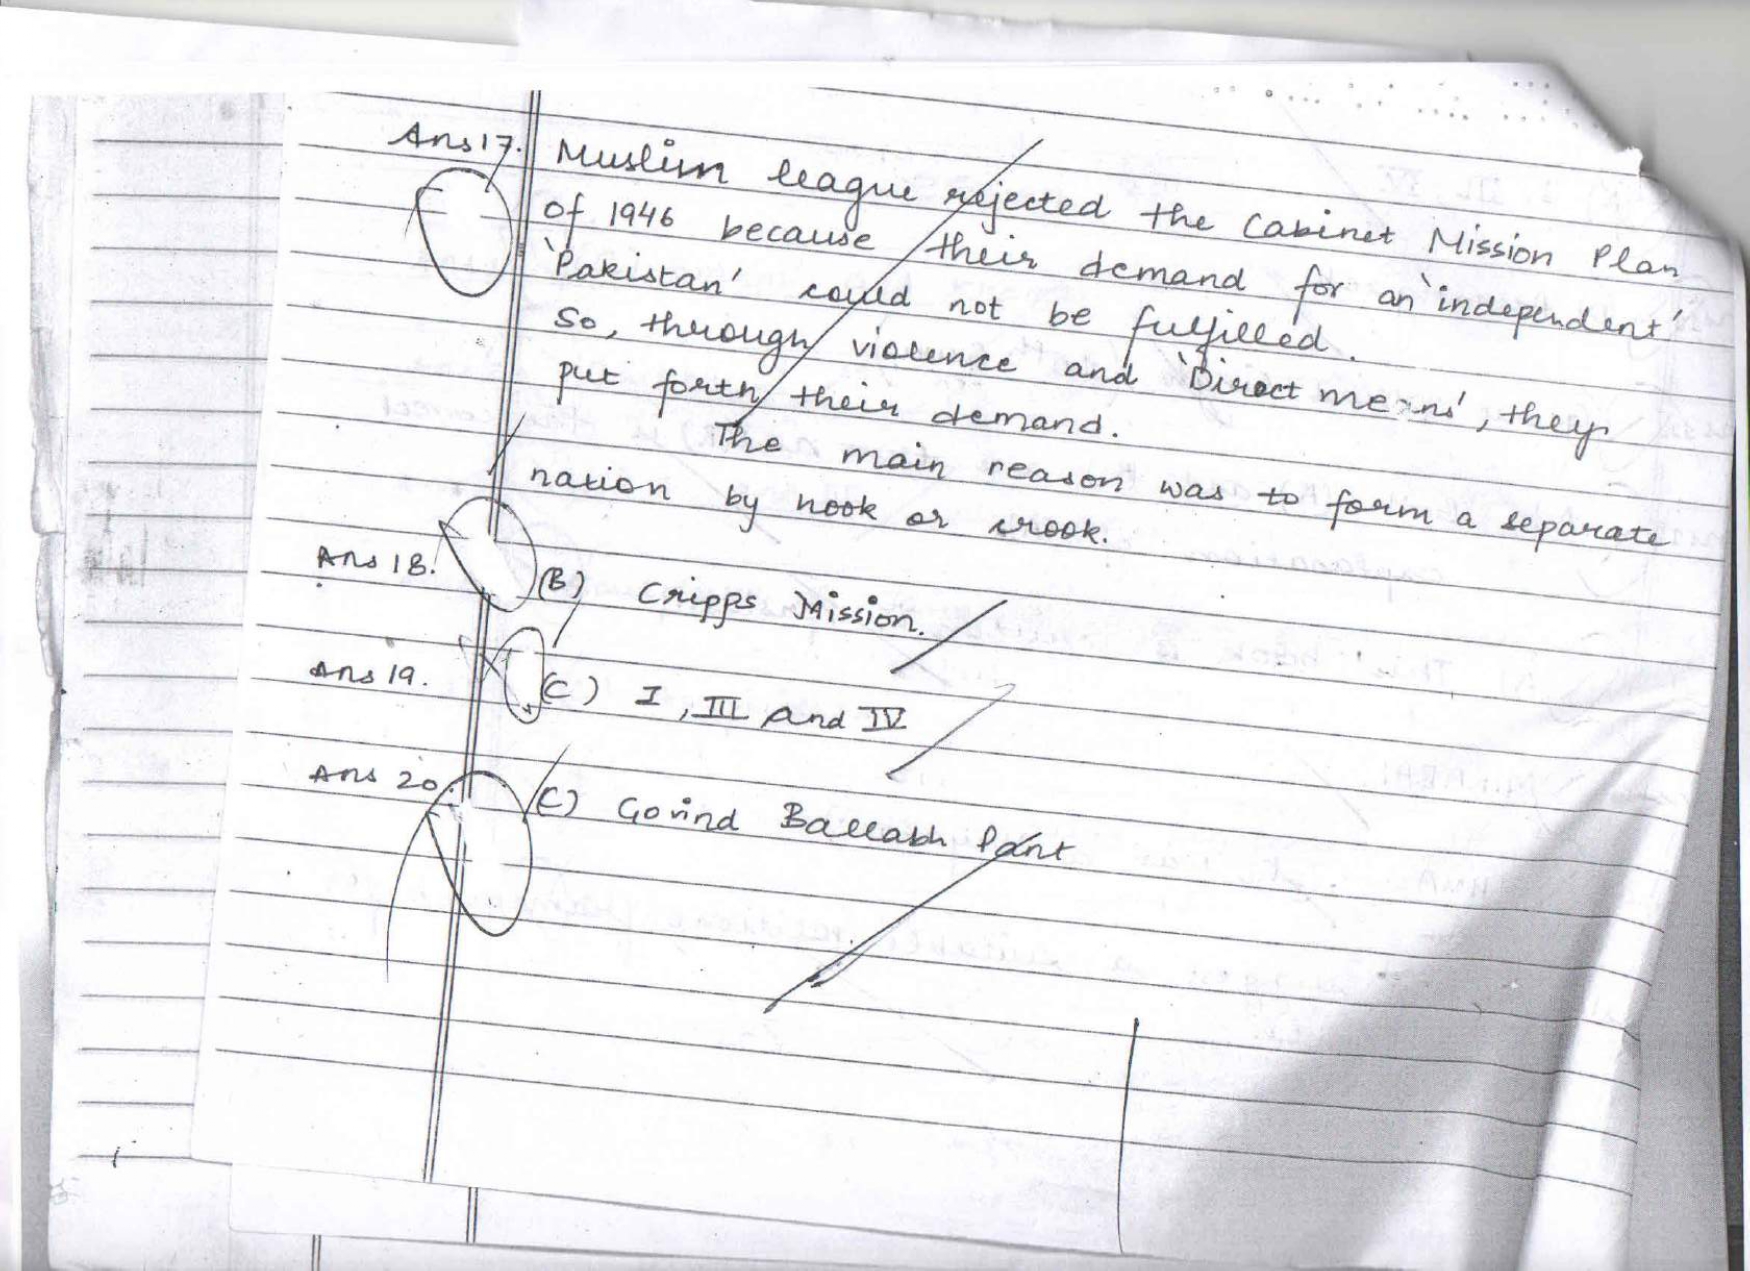 Ans 17. Muslim league rejected the Cabinet Mission Plan
of 1946 because their demand for an 'independent'
'Pakistan' could not be fulfilled.
So, through violence and 'Direct means', they
put forth their demand.
The main reason was to form a separate
nation by hook or crook.
Ans 18. (B) Cripps Mission.
Ans 19. (C) I, III and IV
Ans 20. (C) Govind Ballabh Pant